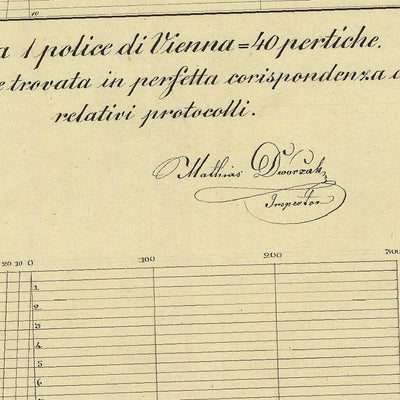 10
a 1 police di Vienna = 40 pertiche.
e trovata in perfetta corispondenza
relativi protocolli.
Mathias Dworzak
Inspector
20 10 0 100 200 300
1.
2.
3.
4.
5.
6.
7.
8.